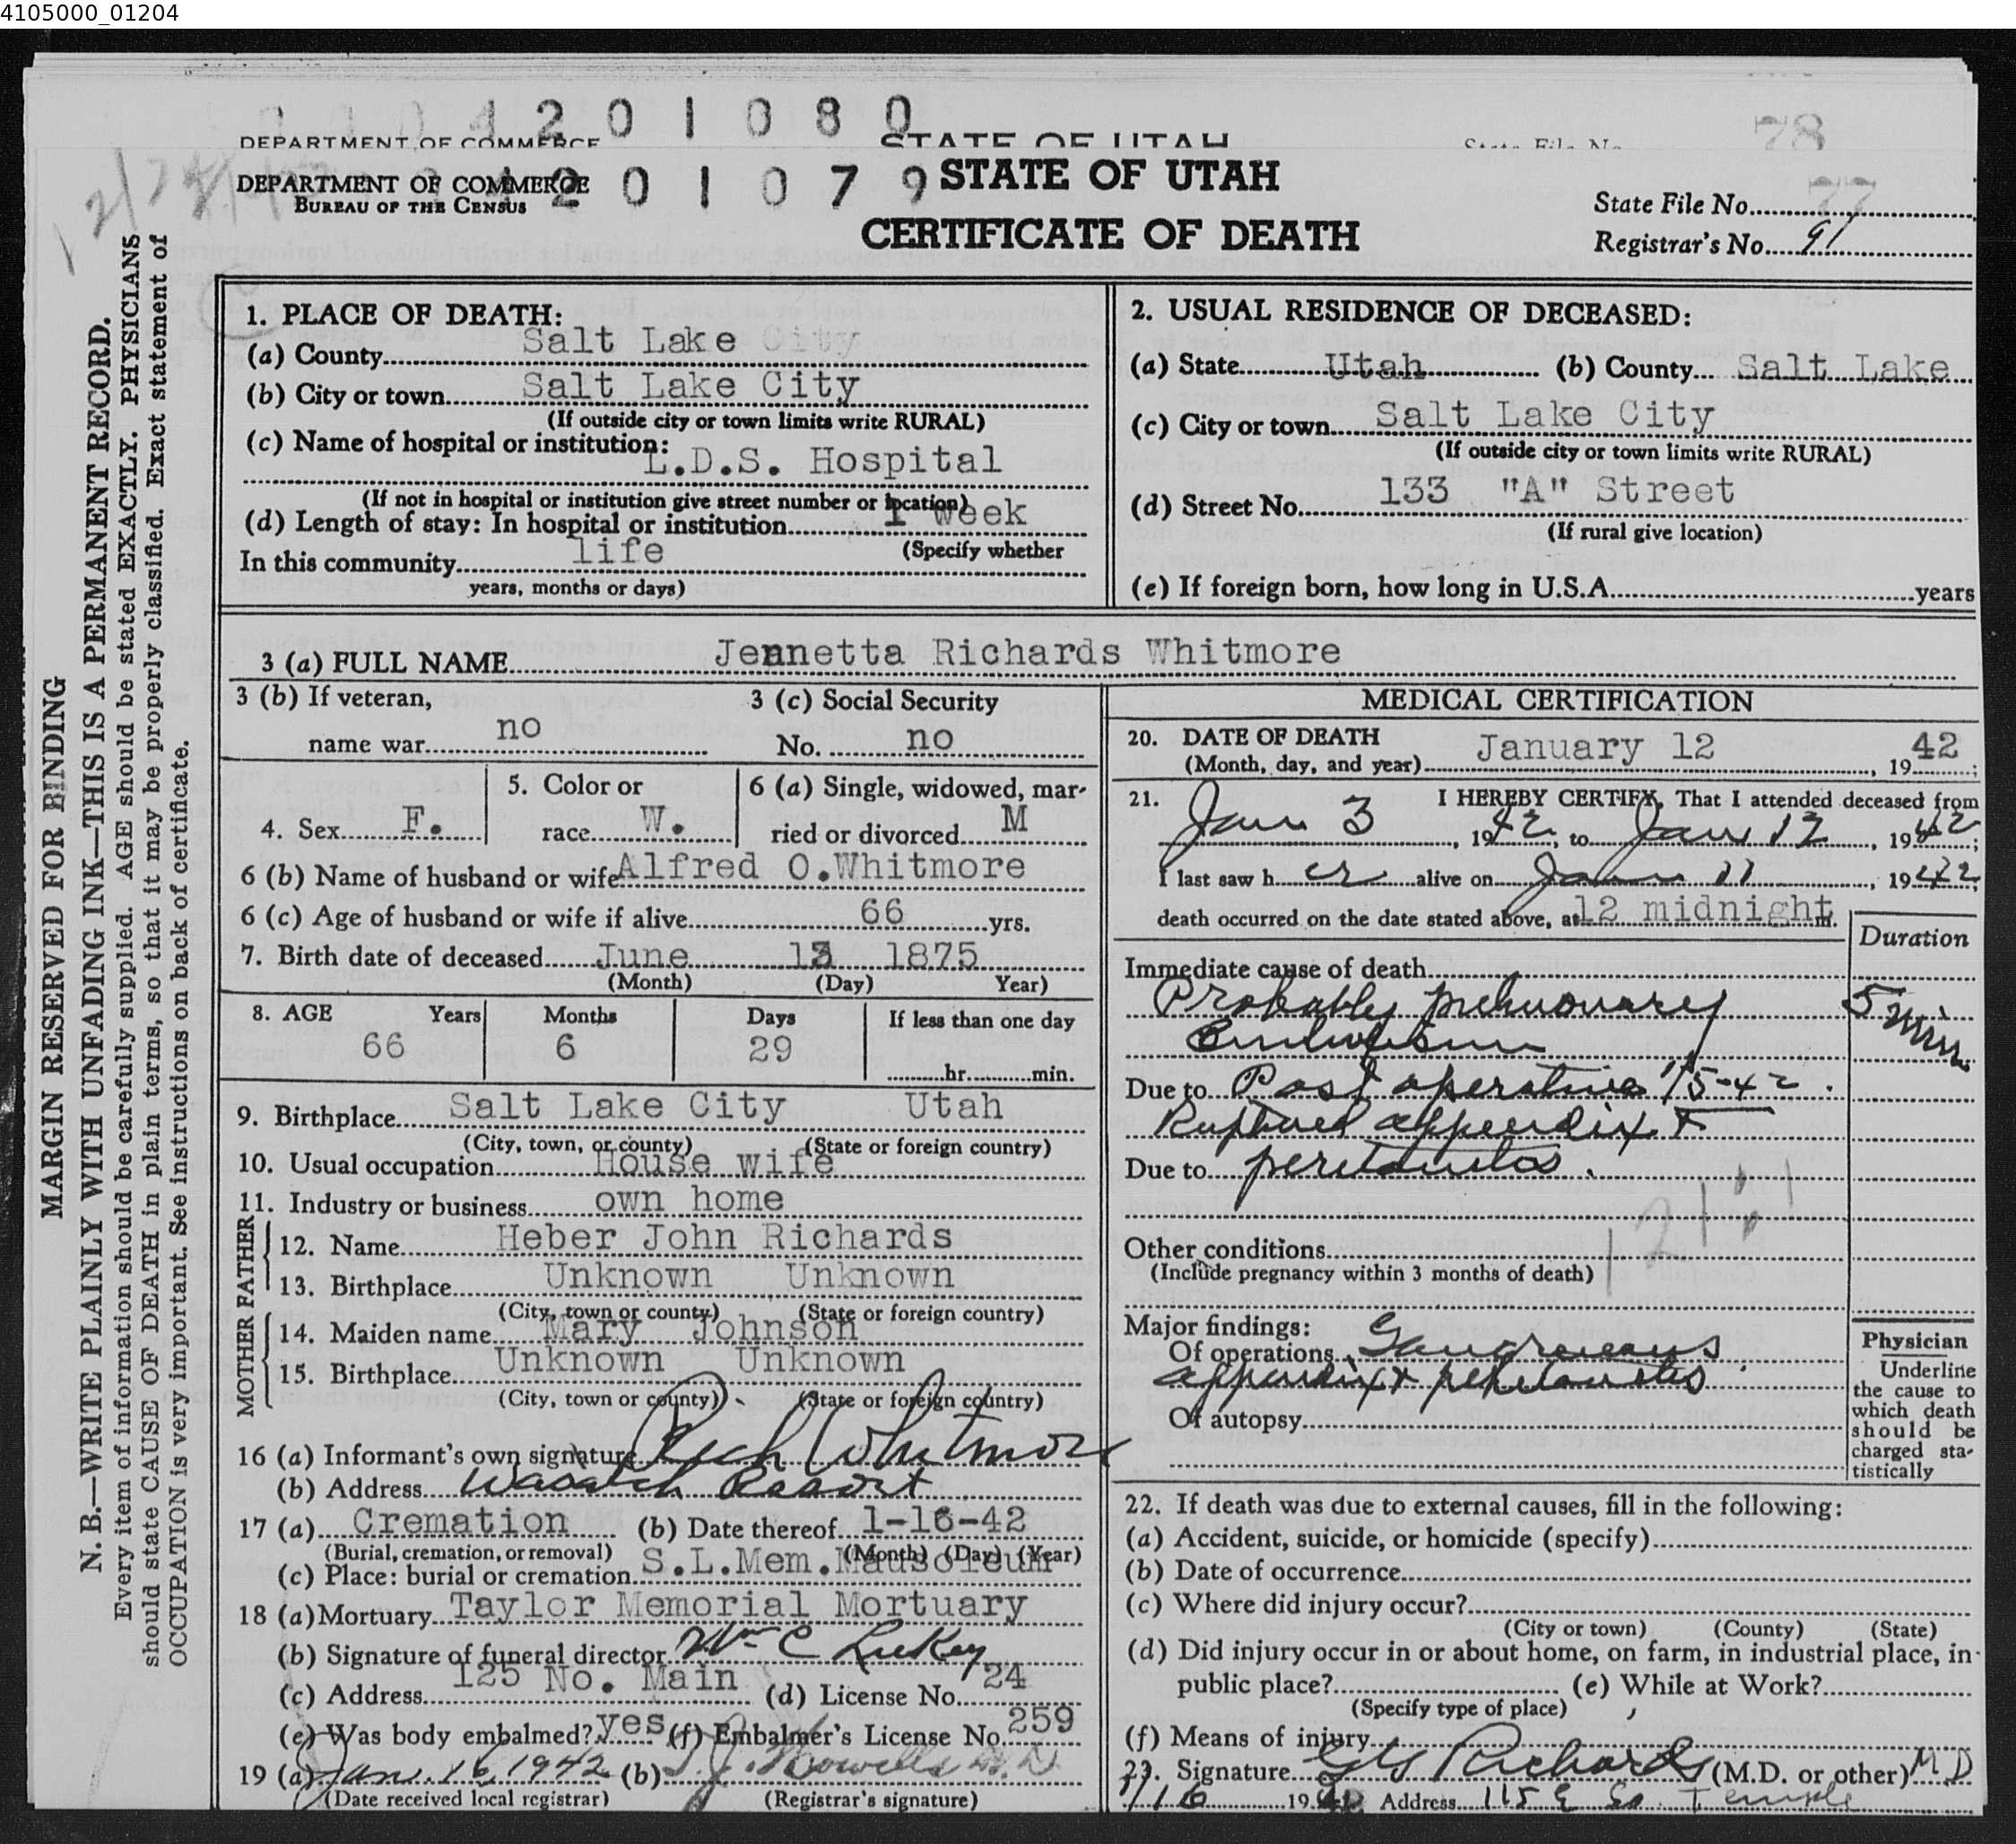 4105000_01204
201080
DEPARTMENT OF COMMERCE STATE OF UTAH State File No. 78
DEPARTMENT OF COMMERCE 4201079 STATE OF UTAH
BUREAU OF THE CENSUS
CERTIFICATE OF DEATH
State File No. 77
Registrar's No. 91
MARGIN RESERVED FOR BINDING
N. B.—WRITE PLAINLY WITH UNFADING INK—THIS IS A PERMANENT RECORD.
Every item of information should be carefully supplied. AGE should be stated EXACTLY. PHYSICIANS
should state CAUSE OF DEATH in plain terms, so that it may be properly classified. Exact statement of
OCCUPATION is very important. See instructions on back of certificate.
1. PLACE OF DEATH:
(a) County Salt Lake City
(b) City or town Salt Lake City
(If outside city or town limits write RURAL)
(c) Name of hospital or institution:
L.D.S. Hospital
(If not in hospital or institution give street number or location)
(d) Length of stay: In hospital or institution 1 week
In this community life (Specify whether
years, months or days)
2. USUAL RESIDENCE OF DECEASED:
(a) State Utah (b) County Salt Lake
(c) City or town Salt Lake City
(If outside city or town limits write RURAL)
(d) Street No. 133 "A" Street
(If rural give location)
(e) If foreign born, how long in U.S.A. years
3 (a) FULL NAME Jennetta Richards Whitmore
3 (b) If veteran, 3 (c) Social Security
name war no No. no
4. Sex F. 5. Color or race W. 6 (a) Single, widowed, married or divorced M
6 (b) Name of husband or wife Alfred O.Whitmore
6 (c) Age of husband or wife if alive 66 yrs.
7. Birth date of deceased June 13 1875
(Month) (Day) Year)
8. AGE Years Months Days If less than one day
66 6 29 hr. min.
9. Birthplace Salt Lake City Utah
(City, town, or county) (State or foreign country)
10. Usual occupation House wife
11. Industry or business own home
FATHER
12. Name Heber John Richards
13. Birthplace Unknown Unknown
(City, town or county) (State or foreign country)
MOTHER
14. Maiden name Mary Johnson
15. Birthplace Unknown Unknown
(City, town or county) (State or foreign country)
16 (a) Informant's own signature Rich Whitmore
(b) Address Wasatch Resort
17 (a) Cremation (b) Date thereof 1-16-42
(Burial, cremation, or removal) (Month) (Day) (Year)
(c) Place: burial or cremation S.L.Mem.Mausoleum
18 (a) Mortuary Taylor Memorial Mortuary
(b) Signature of funeral director Wm C Luekey
(c) Address 125 No. Main (d) License No. 24
(e) Was body embalmed? yes (f) Embalmer's License No. 259
19 (a) Jan. 16, 1942 (b) T. J. Howells M.D.
(Date received local registrar) (Registrar's signature)
MEDICAL CERTIFICATION
20. DATE OF DEATH
(Month, day, and year) January 12, 19 42;
21. I HEREBY CERTIFY, That I attended deceased from
Jan 3, 19 42, to Jan 12, 19 42;
I last saw h er alive on Jan 11, 19 42;
death occurred on the date stated above, at 12 midnight m.
Duration
Immediate cause of death
Probably pulmonary 5 min
Embolism
Due to Post operative 1/5-42.
Ruptured appendix &
Due to peritonitis.
121
Other conditions
(Include pregnancy within 3 months of death)
Major findings:
Of operations Gangrenous
appendix & peritonitis
Of autopsy
Physician
Underline
the cause to
which death
should be
charged sta-
tistically
22. If death was due to external causes, fill in the following:
(a) Accident, suicide, or homicide (specify)
(b) Date of occurrence
(c) Where did injury occur?
(City or town) (County) (State)
(d) Did injury occur in or about home, on farm, in industrial place, in
public place? (e) While at Work?
(Specify type of place)
(f) Means of injury
23. Signature G G Richards (M.D. or other) M D
1/16 19 42 Address 115 E So. Temple